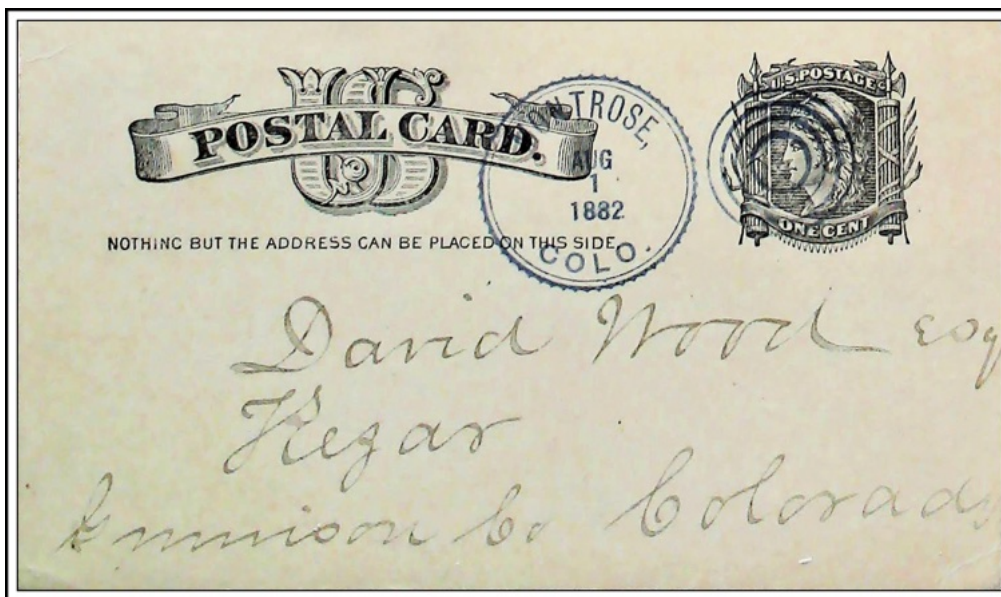 US
POSTAL CARD.
NOTHING BUT THE ADDRESS CAN BE PLACED ON THIS SIDE.
MONTROSE,
AUG
1
1882
COLO.
U.S. POSTAGE
ONE CENT
David Wood Esq
Kezar
Gunnison Co Colorado